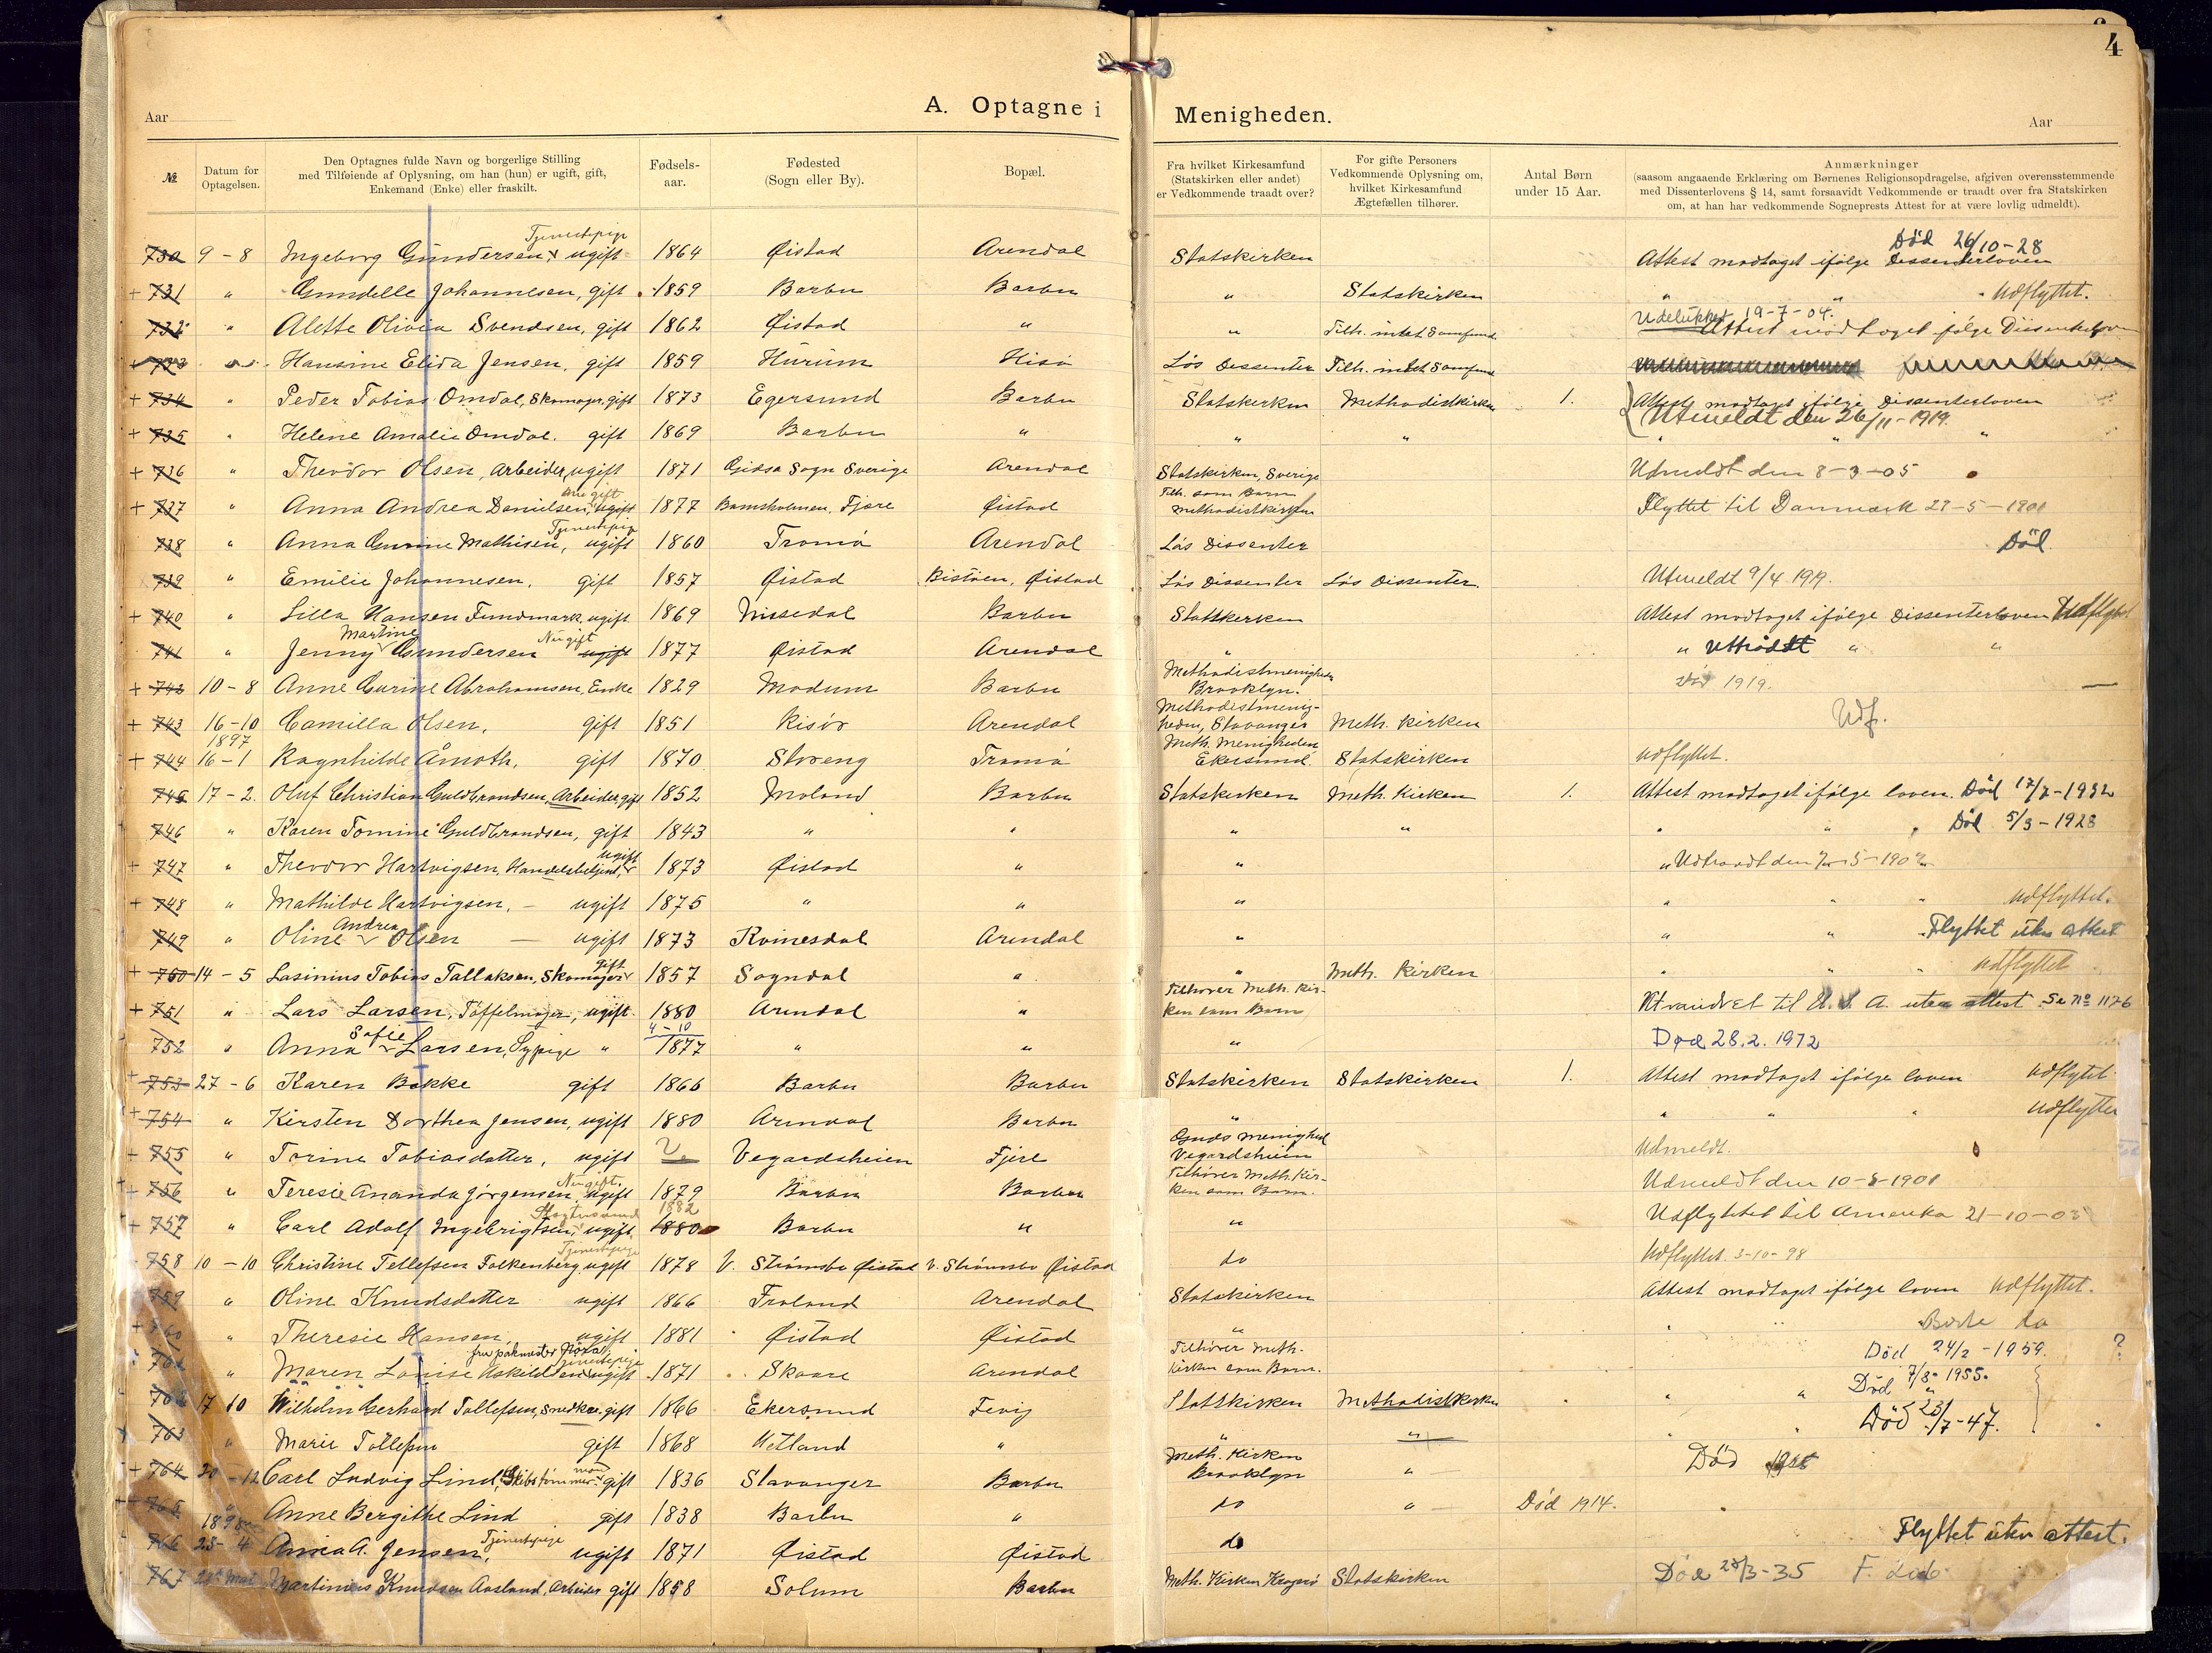 4
A. Optagne i Menigheden.
Aar Aar
№ Datum for Optagelsen. Den Optagnes fulde Navn og borgerlige Stilling med Tilføiende af Oplysning, om han (hun) er ugift, gift, Enkemand (Enke) eller fraskilt. Fødselsaar. Fødested (Sogn eller By). Bopæl. Fra hvilket Kirkesamfund (Statskirken eller andet) er Vedkommende traadt over? For gifte Personers Vedkommende Oplysning om, hvilket Kirkesamfund Ægtefællen tilhører. Antal Børn under 15 Aar. Anmærkninger (saasom angaaende Erklæring om Børnenes Religionsopdragelse, afgiven overensstemmende med Dissenterlovens § 14, samt forsaavidt Vedkommende er traadt over fra Statskirken om, at han har vedkommende Sogneprests Attest for at være lovlig udmeldt).
730 9-8 Ingeborg Gundersen, Tjenestepige ugift 1864 Øistad Arendal Statskirken Attest modtaget ifølge Dissenterloven Död 26/10-28
+ 731 " Gundelle Johannesen, gift 1859 Barbu Barbu " Statskirken " " " Udflyttet.
732 " Alette Olivia Svendsen, gift 1862 Øistad " " Tilh. intet Samfund Udelukket 19-7-04. Attest modtaget
+ 733 " Hansine Elida Jensen, gift 1859 Hurum Hisö Lös Dissenter Tilh. intet Samfund
+ 734 " Peder Tobias Omdal, Skomager, gift 1873 Egersund Barbu Statskirken Methodistkirken 1. Attest modtaget ifølge Dissenterloven
+ 735 " Helene Amalie Omdal. gift 1869 Barbu " " " Utmeldt den 26/11-1919.
+ 736 " Theodor Olsen, Arbeider, ugift 1871 Sogn Sverige Arendal Statskirken, Sverige Udmeldt den 8-3-05
+ 737 " Anna Andrea Danielsen, ugift 1877 Fjære Øistad Tilh. som Barn Methodistkirken Flyttet til Danmark 29-5-1901
738 " Anna Gurine Mathisen, Tjenestepige ugift 1860 Tromö Arendal Lös Dissenter Död.
739 " Emilie Johannesen, gift 1857 Øistad Bistöen, Øistad Lös Dissenter Lös Dissenter Utmeldt 9/4 1919.
+ 740 " Lilla Hansen Fundmark, ugift 1869 Nissedal Barbu Statskirken Attest modtaget ifølge Dissenterloven Udflyttet
741 " Jenny Martine Gundersen Nu gift ugift 1877 Øistad Arendal " " Uttrådt " "
+ 742 10-8 Anne Gurine Abrahamsen, Enke 1829 Modum Barbu Methodistmenigheden Brooklyn. Död 1919.
+ 743 16-10 Camilla Olsen, gift 1851 Risör Arendal Methodistmenigheden, Stavanger Meth. Kirken Udf.
+ 744 1897 16-1 Ragnhilde Åmoth, gift 1870 Tromö Meth. Menigheden Ekersund Statskirken udflyttet.
745 17-2 Oluf Christian Guldbrandsen, Arbeider gift 1852 Moland Barbu Statskirken Meth. Kirken 1. Attest modtaget ifølge loven. Död 17/7-1932
746 " Karen Tomine Guldbrandsen, gift 1843 " " " " " " " Död 5/3-1928
+ 747 " Theodor Hartvigsen, Handelsbetjent, ugift 1873 Øistad " "
+ 748 " Mathilde Hartvigsen, - ugift 1875 " " " " " " Udflyttet.
749 " Oline Andrea Olsen - ugift 1873 Kvinesdal Arendal " " " Flyttet uten attest
+ 750 14-5 Lasinius Tobias Tallaksen, Skomager gift 1857 Sogndal " " Meth. Kirken " " " udflyttet
+ 751 " Lars Larsen, Töffelmager, ugift 1880 Arendal " Tilhører Meth. Kirken som Barn Utvandret til U.S.A. uten attest. Se no 1176
752 " Anna Sofie Larsen, Sypige " 4-10 1877 " " " Død 28.2.1972
+ 753 27-6 Karen Bakke gift 1866 Barbu Barbu Statskirken Statskirken 1. Attest modtaget ifølge loven Udflyttet
+ 754 " Kirsten Dorthea Jensen, ugift 1880 Arendal Barbu " " " " Udflyttet
+ 755 " Torine Tobiasdatter, ugift Vegardsheien Fjære Guds Menighed Vegardsheien Udmeldt.
+ 756 " Teresie Ananda Jørgensen, Nu gift. ugift 1879 Barbu Barbu Tilhører Meth. Kirken som Barn. Udmeldt den 10-8-1901
+ 757 " Carl Adolf Ingebrigtsen, ugift 1880 1882 Barbu " " Udflyttet til Amerika 21-10-03
758 10-10 Christine Tellefsen Falkenberg, Tjenestepige ugift 1878 V. Strömsbo Øistad V. Strömsbo Øistad do Udflyttet. 3-10-98
759 " Oline Knudsdatter ugift 1866 Froland Arendal Statskirken Attest modtaget ifølge loven udflyttet.
760 " Theresie Hansen, ugift 1881 Øistad Øistad " " " Borte do
" Maren Lovise Askildsen Tjenestepige ugift 1871 Skaare Arendal Tilhører Meth. Kirken som Barn. Död 24/2-1959. ?
17 10 Wilhelm Gerhard Tollefsen, Snedker, gift 1866 Ekersund Fevig Statskirken Methodistkirken " " Död 7/8-1955.
763 " Marie Tollefsen gift 1868 Hetland " " " Död 23/7-47.
+ 764 20-12 Carl Ludvig Lind, Skibstömmermand gift 1836 Stavanger Barbu Meth. Kirken Brooklyn " Död
" Anne Bergithe Lind gift 1838 Barbu " do " Död 1914.
766 1898 23-4 Anna A. Jensen, Tjenestepige ugift 1871 Øistad Øistad do Flyttet uten attest.
767 Martinius Knudsen Aasland, Arbeider gift 1858 Solum Barbu Meth. Kirken Kragerö Statskirken Död 28/3-35